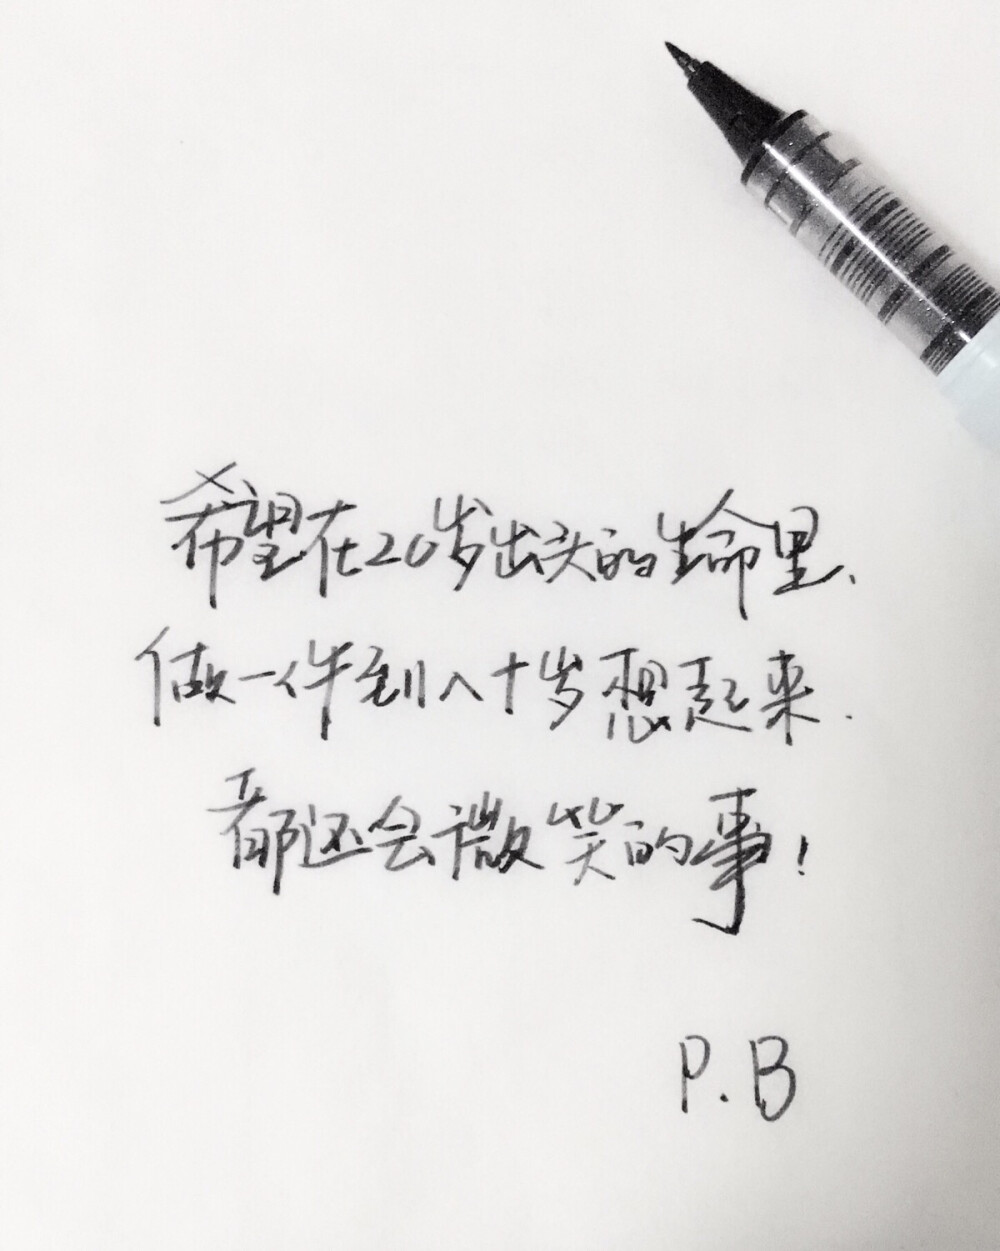 希望在20岁出头的生命里、
做一件到八十岁想起来.
都还会微笑的事!
P.B